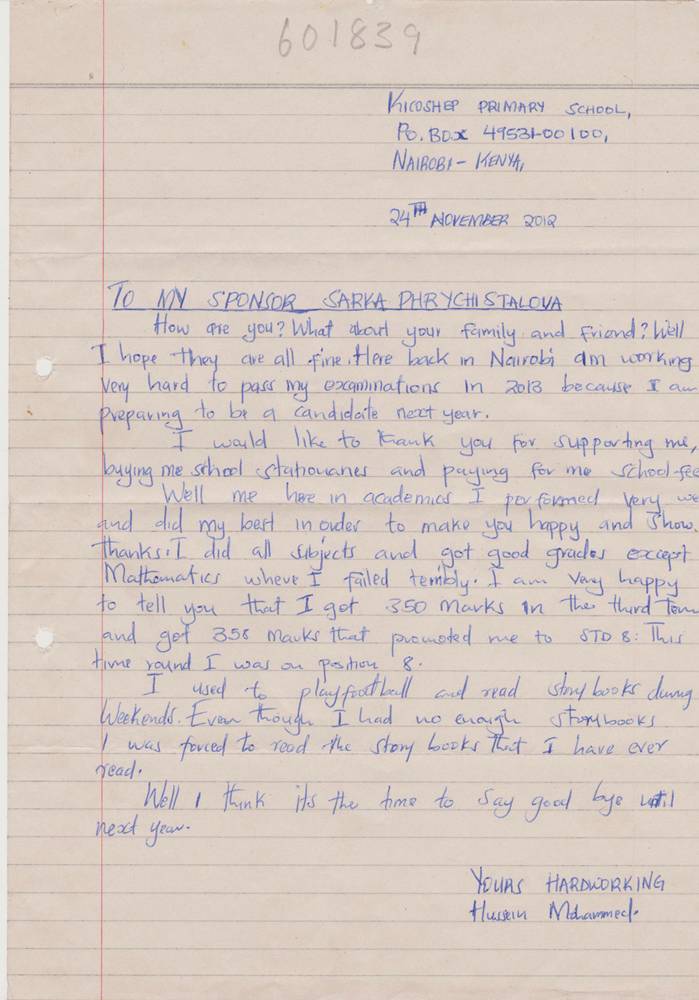 601839
KICOSHEP PRIMARY SCHOOL,
PO. BOX 49531-00100,
NAIROBI - KENYA,
24TH NOVEMBER 2012
TO MY SPONSOR SARKA PHRYCHISTALOVA
How are you? What about your family and friend? Well
I hope they are all fine. Here back in Nairobi am working
very hard to pass my examinations in 2013 because I am
preparing to be a candidate next year.
I would like to thank you for supporting me,
buying me school stationaries and paying for me school fee
Well me here in academics I performed very we
and did my best in order to make you happy and show.
thanks. I did all subjects and got good grades except
Mathematics where I failed terribly. I am very happy
to tell you that I got 350 marks in the third term
and got 358 marks that promoted me to STD 8: This
time round I was on position 8.
I used to play football and read story books during
Weekends. Even though I had no enough storybooks
I was forced to read the story books that I have ever
read.
Well I think its the time to say good bye until
next year.
YOURS HARDWORKING
Hussein Mohammed.